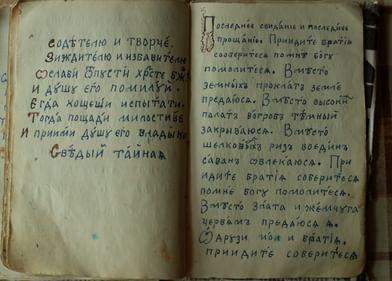 Содѣтелю и творче.
Зиждителю и избавителю
Ѡслави ѿпусти хр҃сте бж҃е
и дꙋшу его помилуи.
Егда хощеши испытати.
Тогда пощади милостиве
И приими дꙋшу его владыко
Свѣдый тайная
Последнее свиданїе и последнее
прощанїе. Приидите братїѧ
сооверитесѧ помнѣ богу
помолитесѧ. Вмѣсто
земных проклатъ землѣ
предаюсѧ. Вмѣсто высоких
палатъ вогровъ тѣмный
закрываюсѧ. Вмѣсто
шелковых ризъ воедин
саванъ ѡвлекаюсѧ. При
идите братїѧ соберитесѧ
помне богу помолитесѧ.
Вмѣсто злата и жемчуга
червѧмъ предаюсѧ ѧ.
Ѿ друзи мои и братїѧ.
приидите соберитесѧ